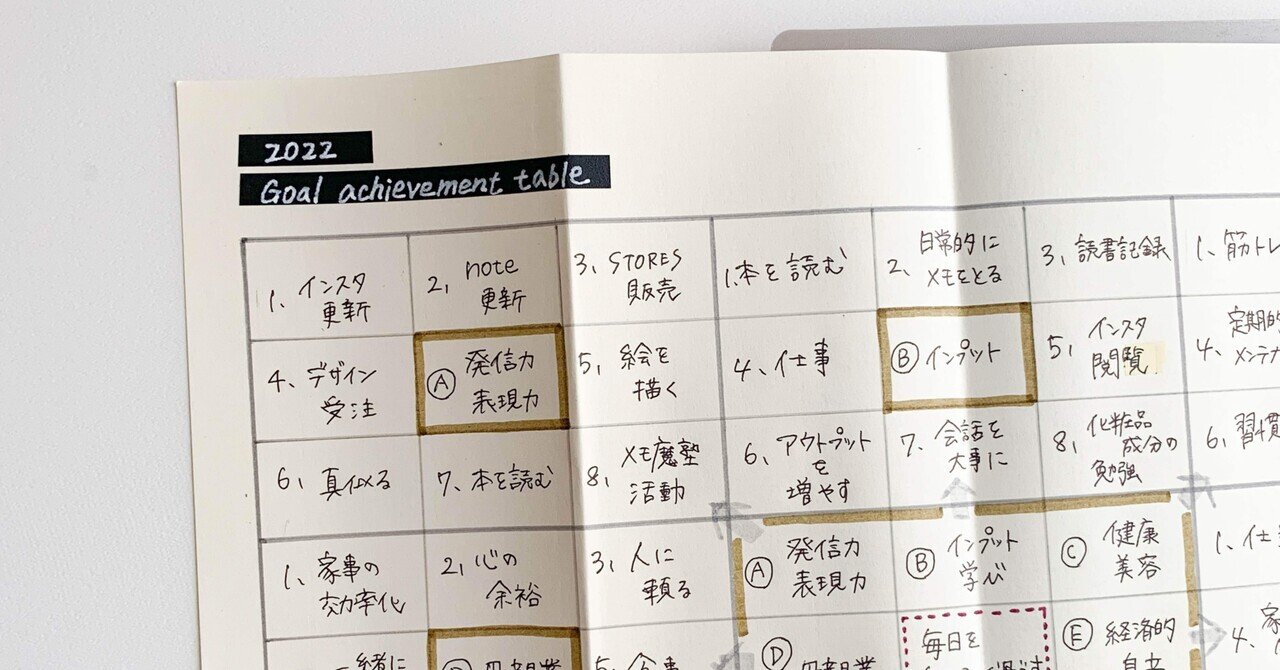 2022
Goal achievement table
1、インスタ
更新
2、note
更新
3、STORES
販売
1、本を読む
2、日常的に
メモをとる
3、読書記録
1、筋トレ
4、デザイン
受注
Ⓐ 発信力
表現力
5、絵を
描く
4、仕事
Ⓑ インプット
5、インスタ
閲覧
4、定期的
メンテナ
6、真似る
7、本を読む
8、メモ魔塾
活動
6、アウトプット
を
増やす
7、会話を
大事に
8、化粧品
成分の
勉強
6、習慣
1、家事の
効率化
2、心の
余裕
3、人に
頼る
Ⓐ 発信力
表現力
Ⓑ インプット
学び
Ⓒ 健康
美容
1、仕事
一緒に
5、
Ⓓ
毎日を
Ⓔ 経済的
自由
4、家